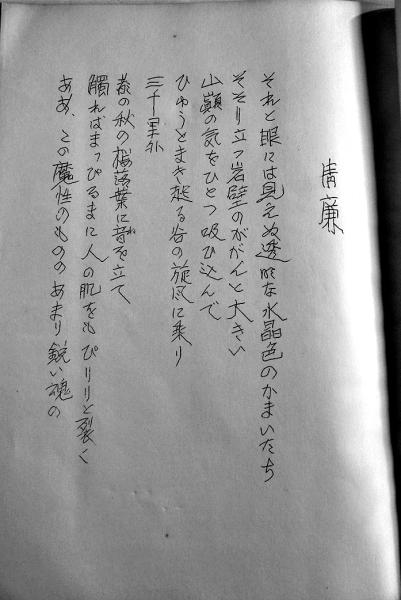 清廉
それと眼には見えぬ透明な水晶色のかまいたち
そそり立つ岩壁のががんと大きい
山巓の気をひとつ吸ひ込んで
ひゆうとまき起る谷の旋風に乗り
三千里外
都の秋の桜落葉に音を立て
触ればまつぴるまに人の肌をもぴりりと裂く
ああ、この魔性のもののあまり鋭い魂の